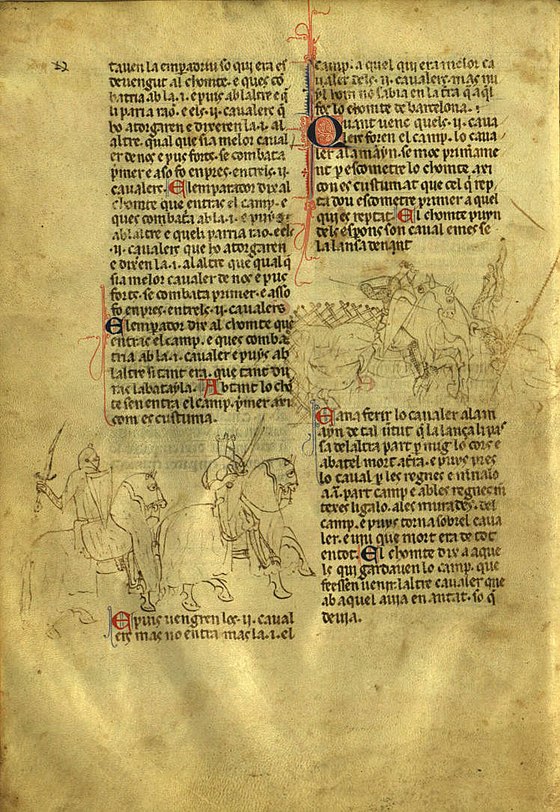 taven la emperadriu so qui era es
devengut al chomte· e ques co
batria ab la ·i· e puys ab laltre e q̄
li paria rao· e els ·ii· cavalers q̄
ho atorgaren e dixeren la ·i· al
altre· qual que sia melor caval
er de nos e pus forts· se combata
primer e aso fo enpres· entrels ·ii·
cavalers· El emperador dix al
chomte que entras el camp· e
ques combata ab la ·i· e puys
ab laltre e queli paria rao· e els
·ii· cavalers que ho atorgaren
e dixeren la ·i· al altre que qual q̄
sia melor cavaler de nos e pus
forts· se combata primer· e asso
fo enpres· entrels ·ii· cavalers
El emperador dix al chomte que
entras el camp· e ques comba
tria ab la ·i· cavaler e puys ab
laltre si tant era· que tant du
ras la batayla· Abtant lo cho
te sen entra el camp· primer axi
com es custuma·
E puys vengren los ·ii· caval
ers mas no entra mas la ·i· el
camp· a quel qui era melor ca
valer dels ·ii· cavalers· mas nuy
yl hom no sabia en la tra q̄ aq̄l
fos lo chomte de barcelona·
Quant venc quels ·ii· cava
lers foren el camp· lo cava
ler alamayn se moc primame
nt per escometre lo chomte· axi
con es custumat que cel q̄ rep
ta dou escometre primer a quel
qui es reptat· El chomte puyn
dels esperons son caval e mes se
la lansa denant
E ana ferir lo cavaler alam
ayn de tal virtut q̄ la lança li pa
sa delaltra part per mig lo cors e
abatel mort a terra· e puys pres
lo caval per les regnes e menalo
a ·i· part camp e ab les regnes m
teres ligalo· ales murades del
camp· e puys torna sobrel cava
ler· e viu que mort era de tot
en tot· El chomte dix a aque
ls qui gardaven lo camp· que
feessen venir laltre cavaler que
ab aquel avia en antat· so q̄
devia·